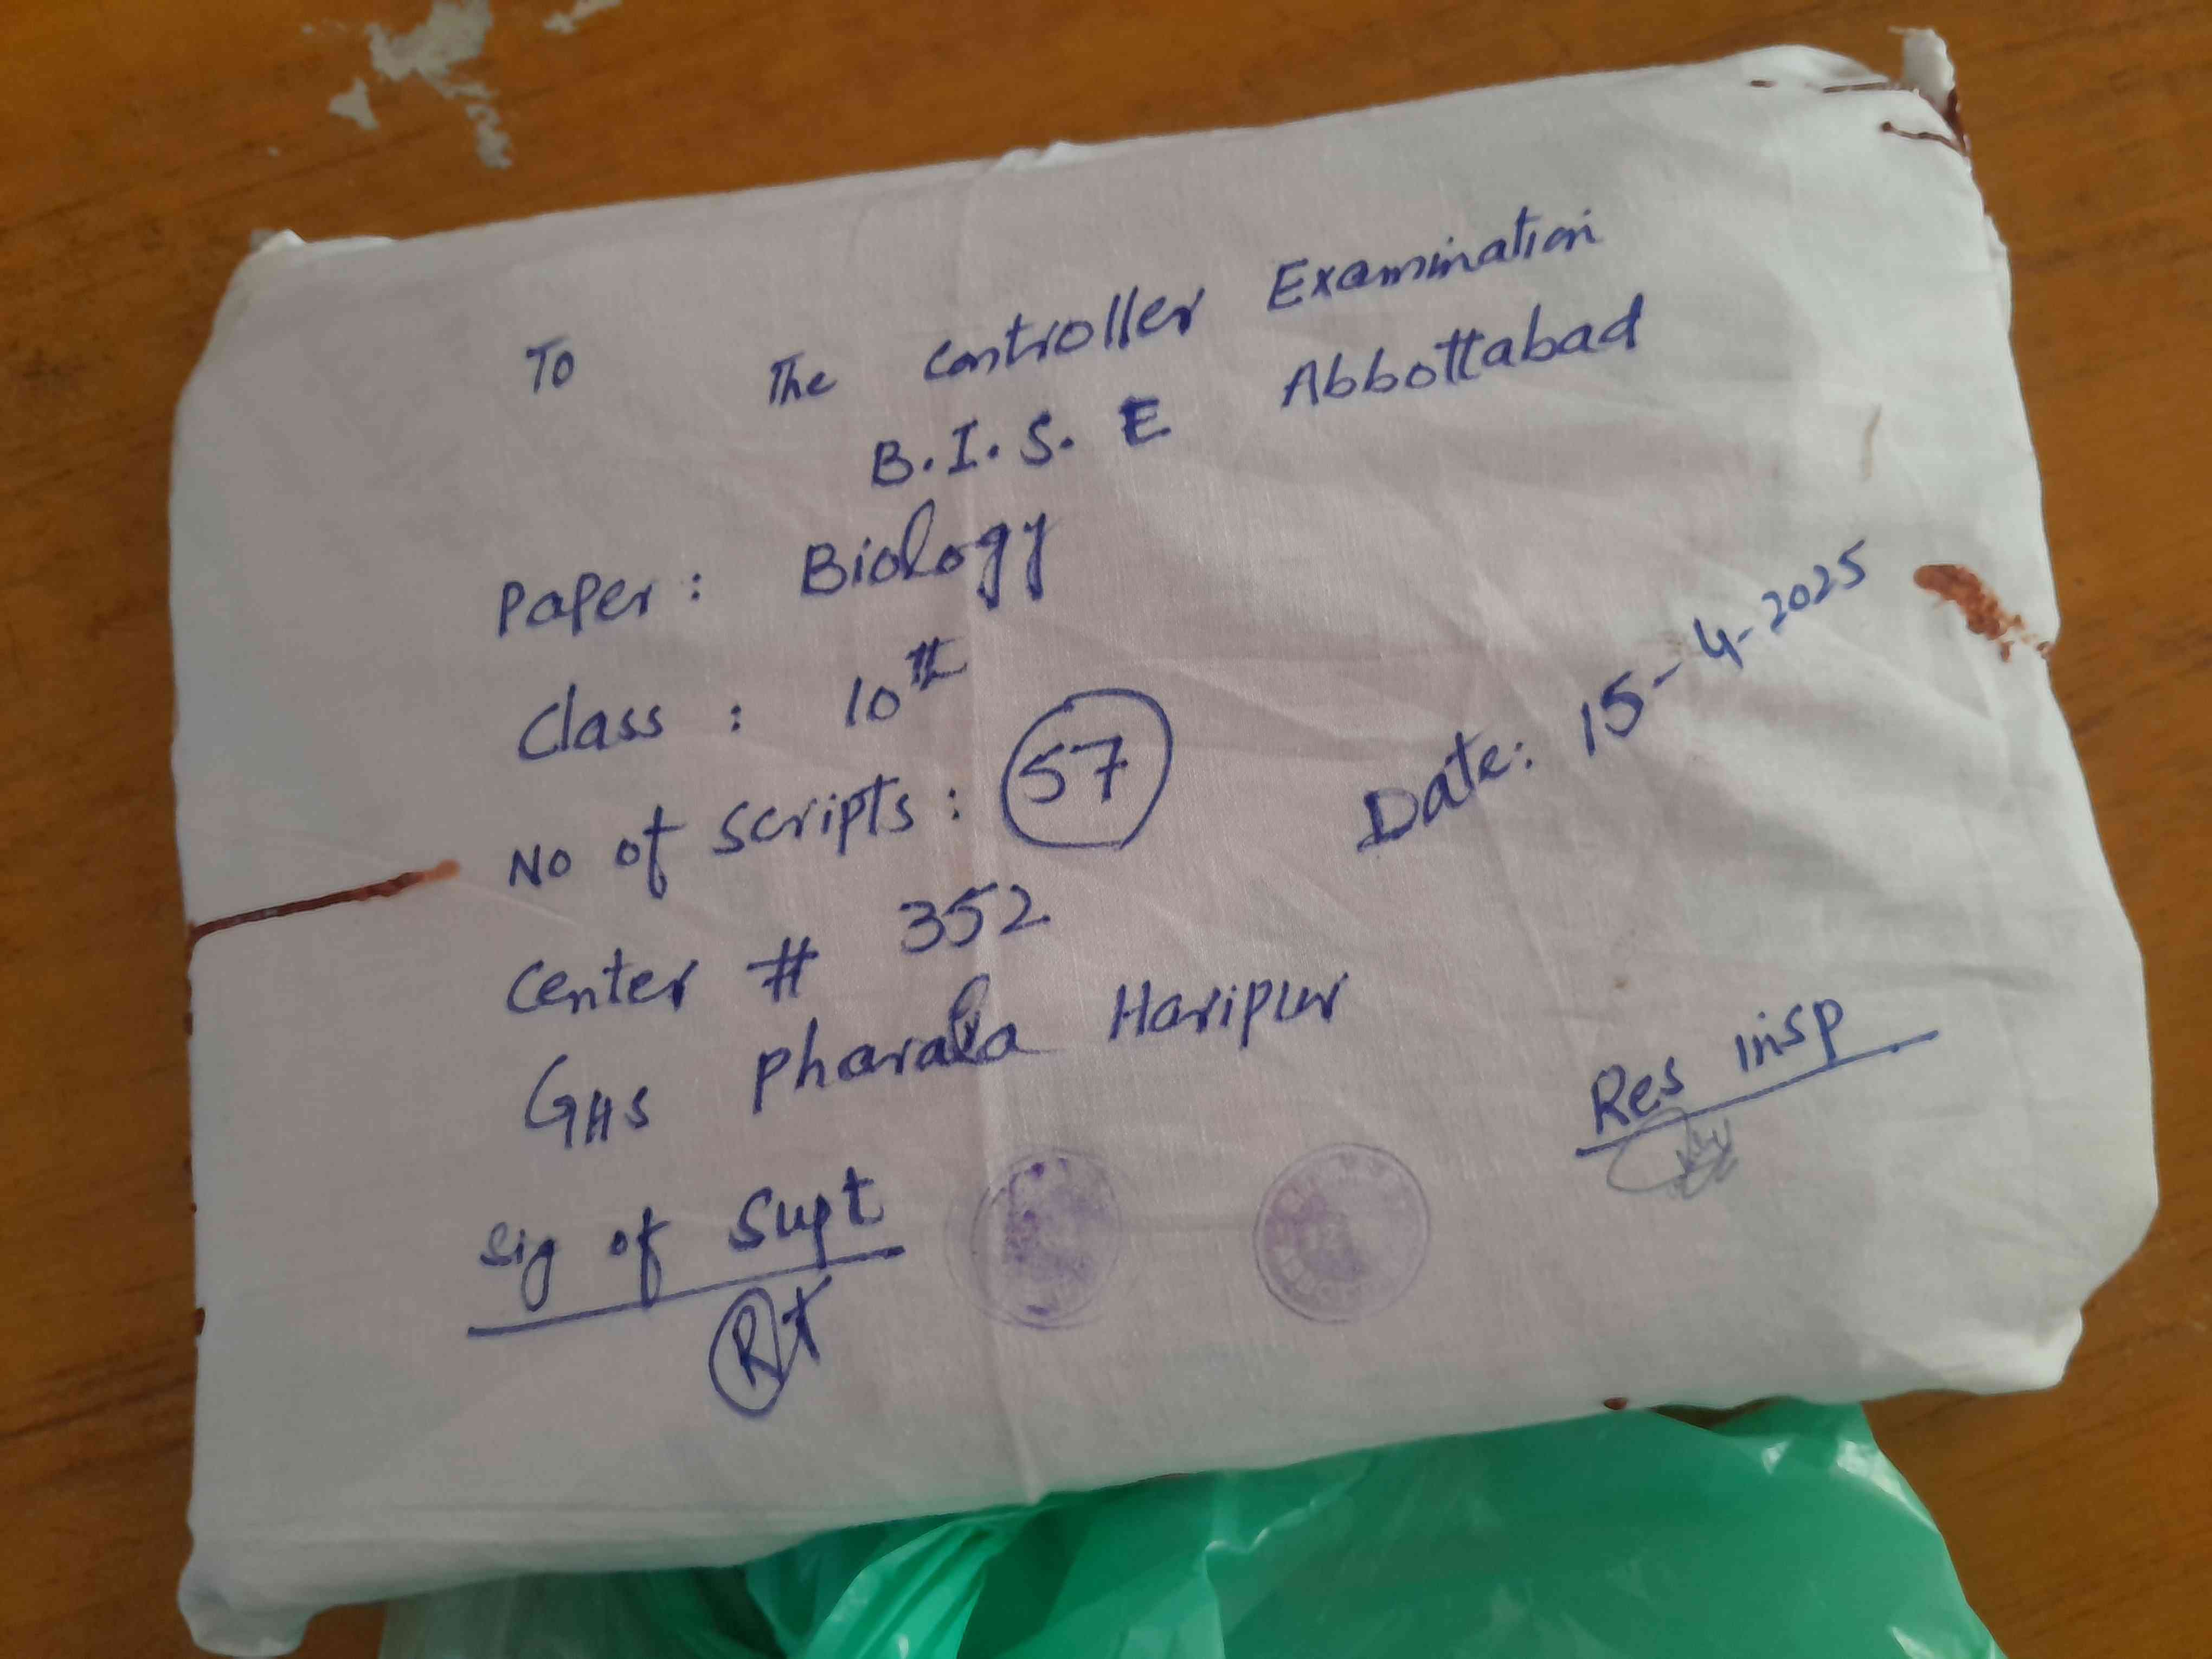 To The Controller Examination
B.I.S.E Abbottabad
Paper: Biology
Class: 10th
No of Scripts: 57
Date: 15-4-2025
Center # 352
GHS Pharala Haripur
Res Insp
Sig of Supt